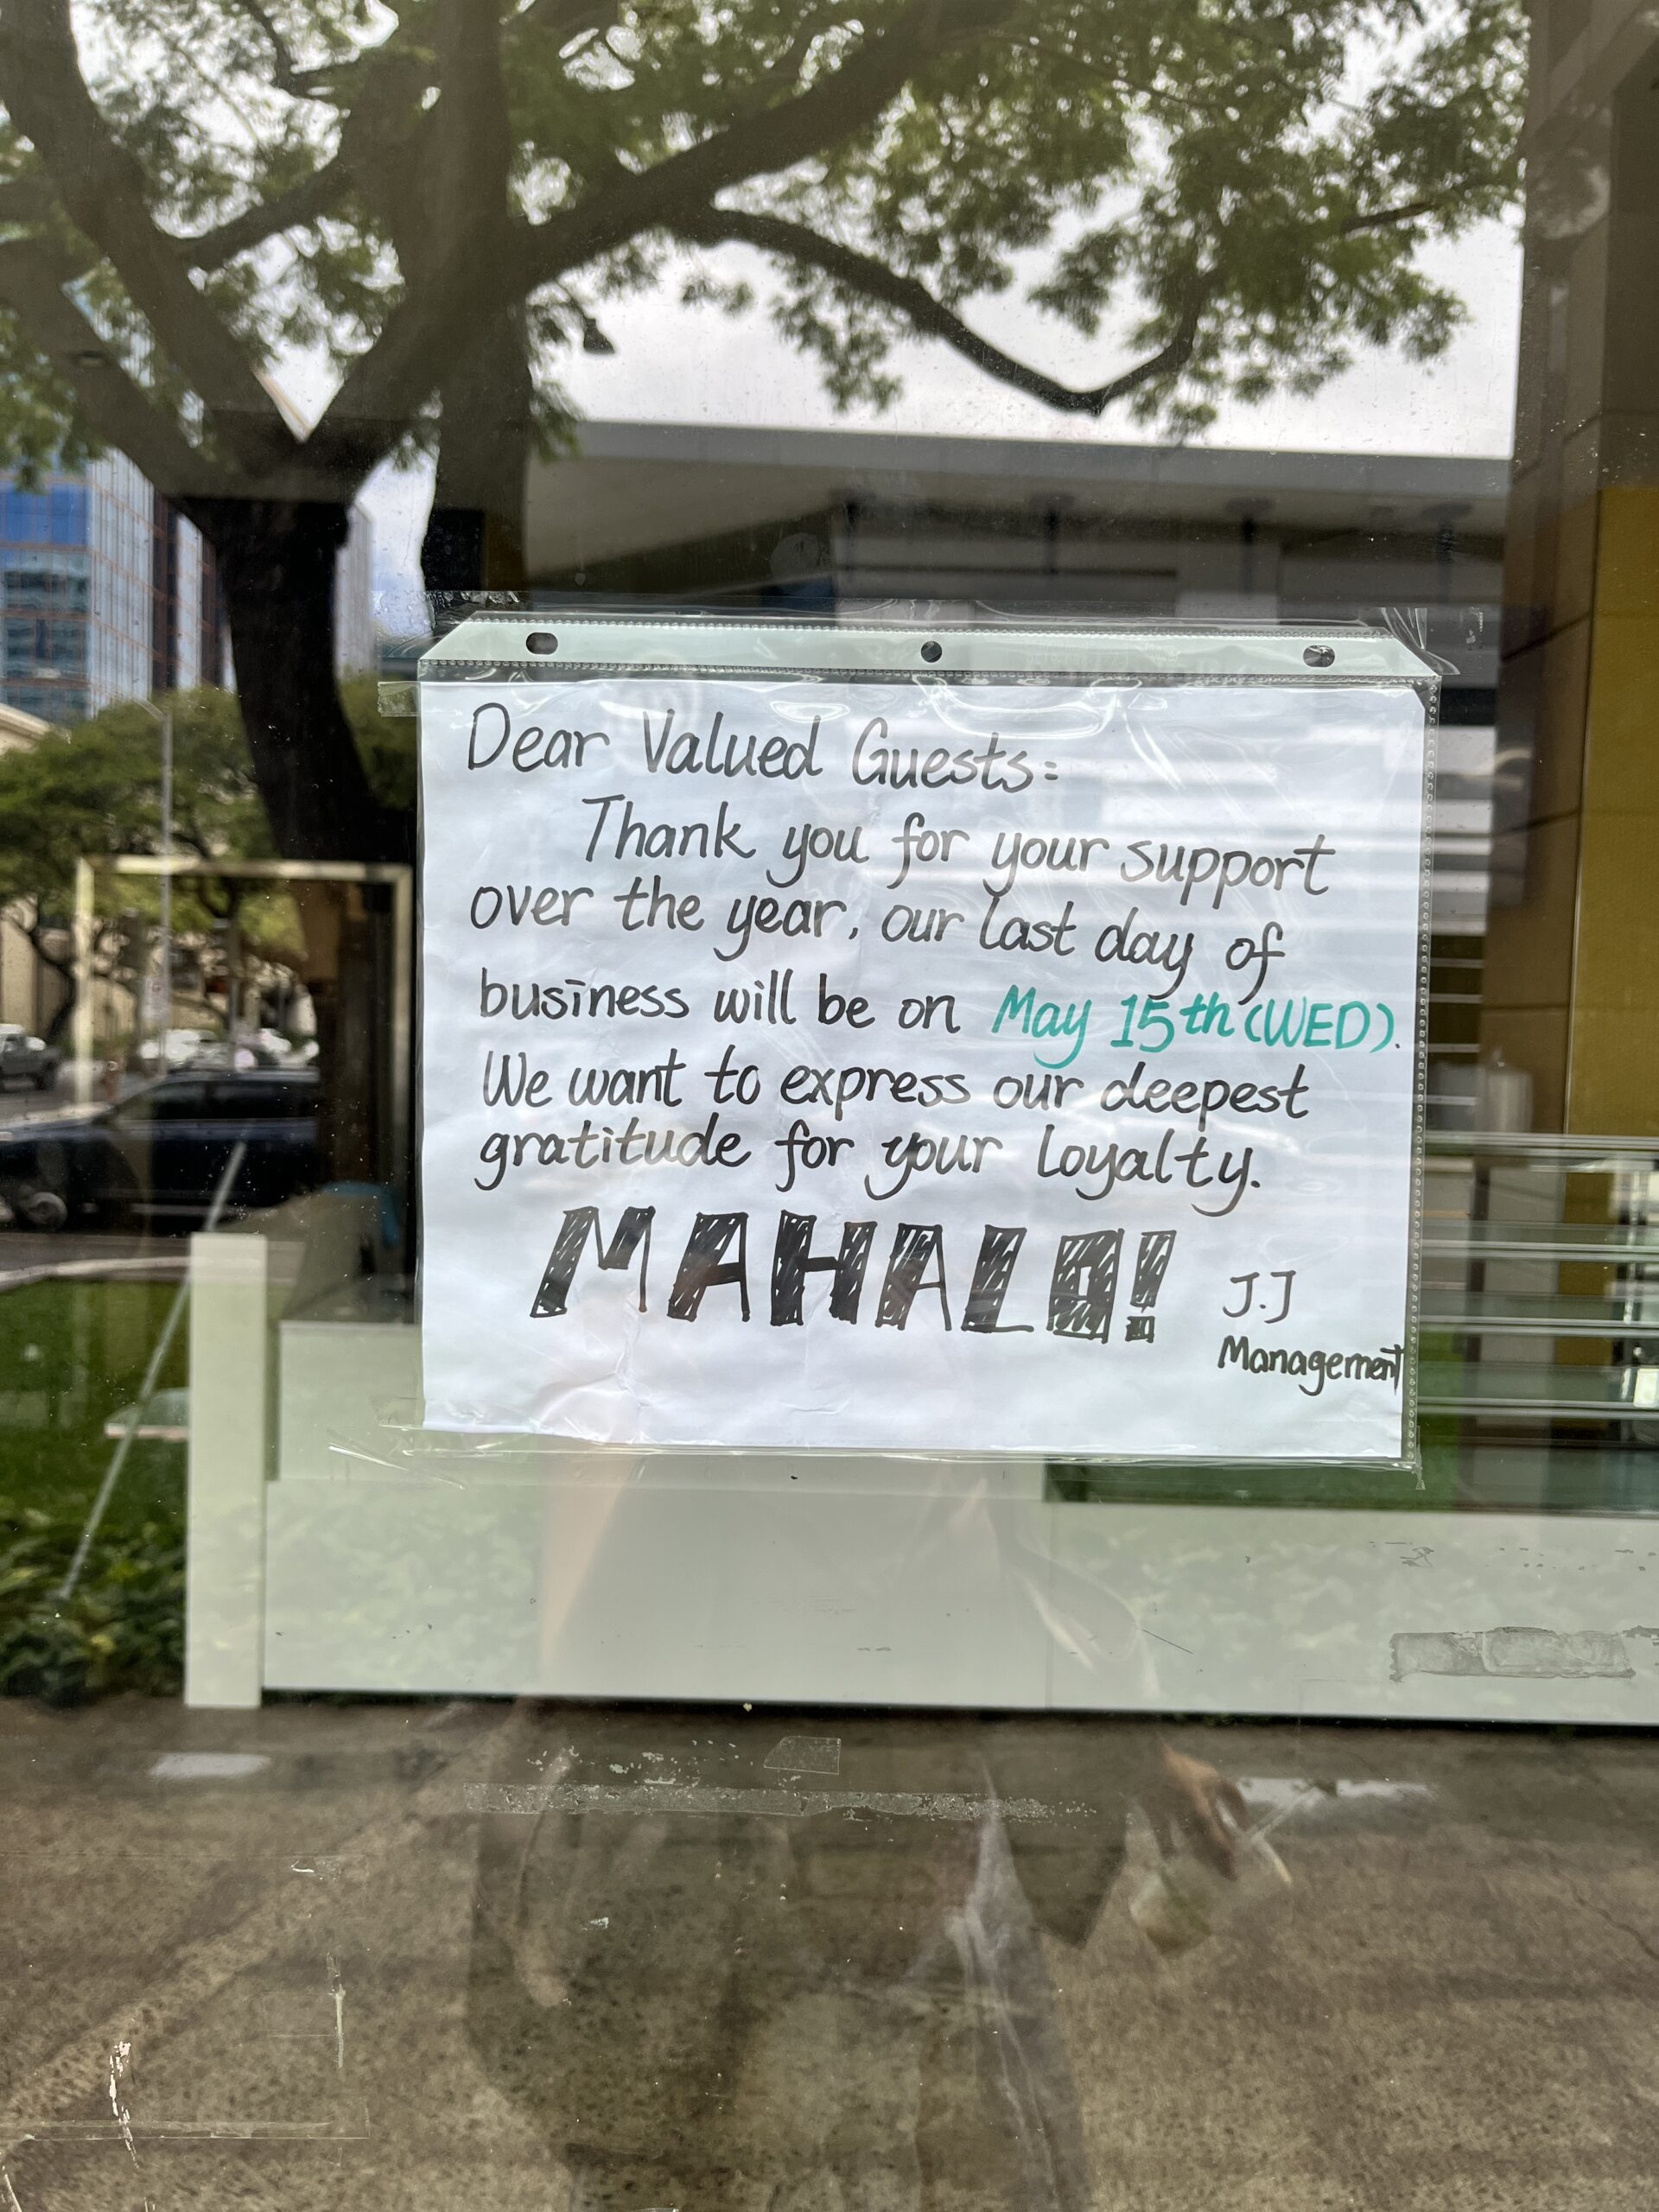 Dear Valued Guests:
Thank you for your support
over the year, our last day of
business will be on May 15th (WED).
We want to express our deepest
gratitude for your loyalty.
MAHALO!
J.J
Management